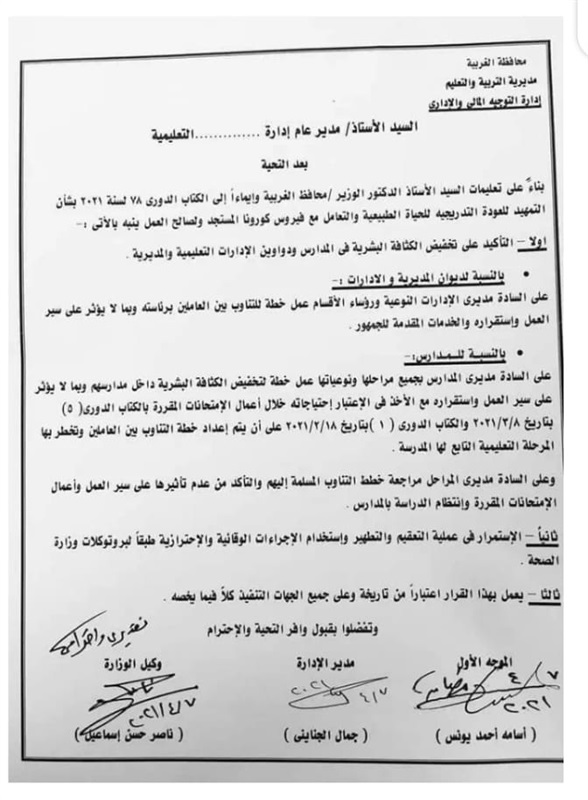 محافظة الغربية
مديرية التربية والتعليم
إدارة التوجيه المالى والإدارى
السيد الأستاذ/ مدير عام إدارة ..............التعليمية
بعد التحية
بناءً على تعليمات السيد الأستاذ الدكتور الوزير /محافظ الغربية وإيماءاً إلى الكتاب الدورى ٧٨ لسنة ٢٠٢١ بشأن
التمهيد للعودة التدريجيه للحياة الطبيعية والتعامل مع فيروس كورونا المستجد ولصالح العمل ينبه بالأتى :-
اولا – التأكيد على تخفيض الكثافة البشرية فى المدارس ودواوين الإدارات التعليمية والمديرية .
• بالنسبة لديوان المديرية و الادارات :-
على السادة مديرى الإدارات النوعية ورؤساء الأقسام عمل خطة للتناوب بين العاملين برئاسته وبما لا يؤثر على سير
العمل وإستقراره والخدمات المقدمة للجمهور .
• بالنسبة للـمـدارس:-
على السادة مديرى المدارس بجميع مراحلها ونوعياتها عمل خطة لتخفيض الكثافة البشرية داخل مدارسهم وبما لا يؤثر
على سير العمل واستقراره مع الأخذ فى الإعتبار إحتياجاته خلال أعمال الإمتحانات المقررة بالكتاب الدورى( ٥ )
بتاريخ ٢٠٢١/٣/٨ والكتاب الدورى ( ١ )بتاريخ ٢٠٢١/٢/١٨ على أن يتم إعداد خطة التناوب بين العاملين وتخطر بها
المرحلة التعليمية التابع لها المدرسة .
وعلى السادة مديرى المراحل مراجعة خطط التناوب المسلمة إليهم والتأكد من عدم تأثيرها على سير العمل وأعمال
الإمتحانات المقررة وإنتظام الدراسة بالمدارس .
ثانياً – الإستمرار فى عملية التعقيم والتطهير وإستخدام الإجراءات الوقائية والإحترازية طبقاً لبروتوكلات وزارة
الصحة .
ثالثا – يعمل بهذا القرار اعتباراً من تاريخة وعلى جميع الجهات التنفيذ كلاً فيما يخصه .
وتفضلوا بقبول وافر التحية والإحترام
الموجه الأول مدير الإدارة وكيل الوزارة
٤/٧ ٢٠٢١ ٤/٧ ٢٠٢١ ٢٠٢١/٤/٧
( أسامه أحمد يونس ) ( جمال الجناينى ) ( ناصر حسن إسماعيل )